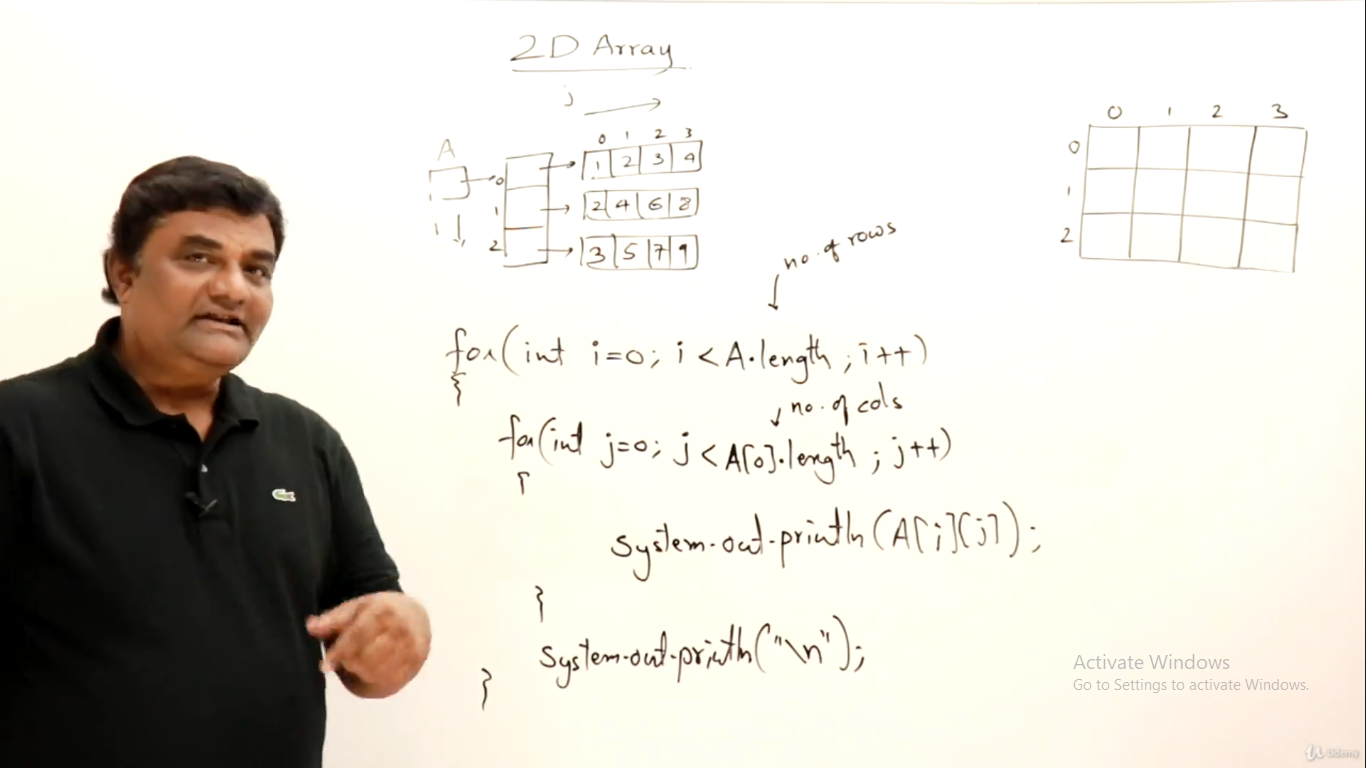 2D Array
j
0 1 2 3
A
0
1 2 3 4
i
1
2 4 6 8
2
3 5 7 9
0 1 2 3
0
1
2
no. of rows
for(int i=0; i < A.length ; i++)
{
no. of cols
for(int j=0; j < A[0].length ; j++)
{
system.out.println(A[i][j]);
}
system.out.println("\n");
}
Activate Windows
Go to Settings to activate Windows.
Udemy